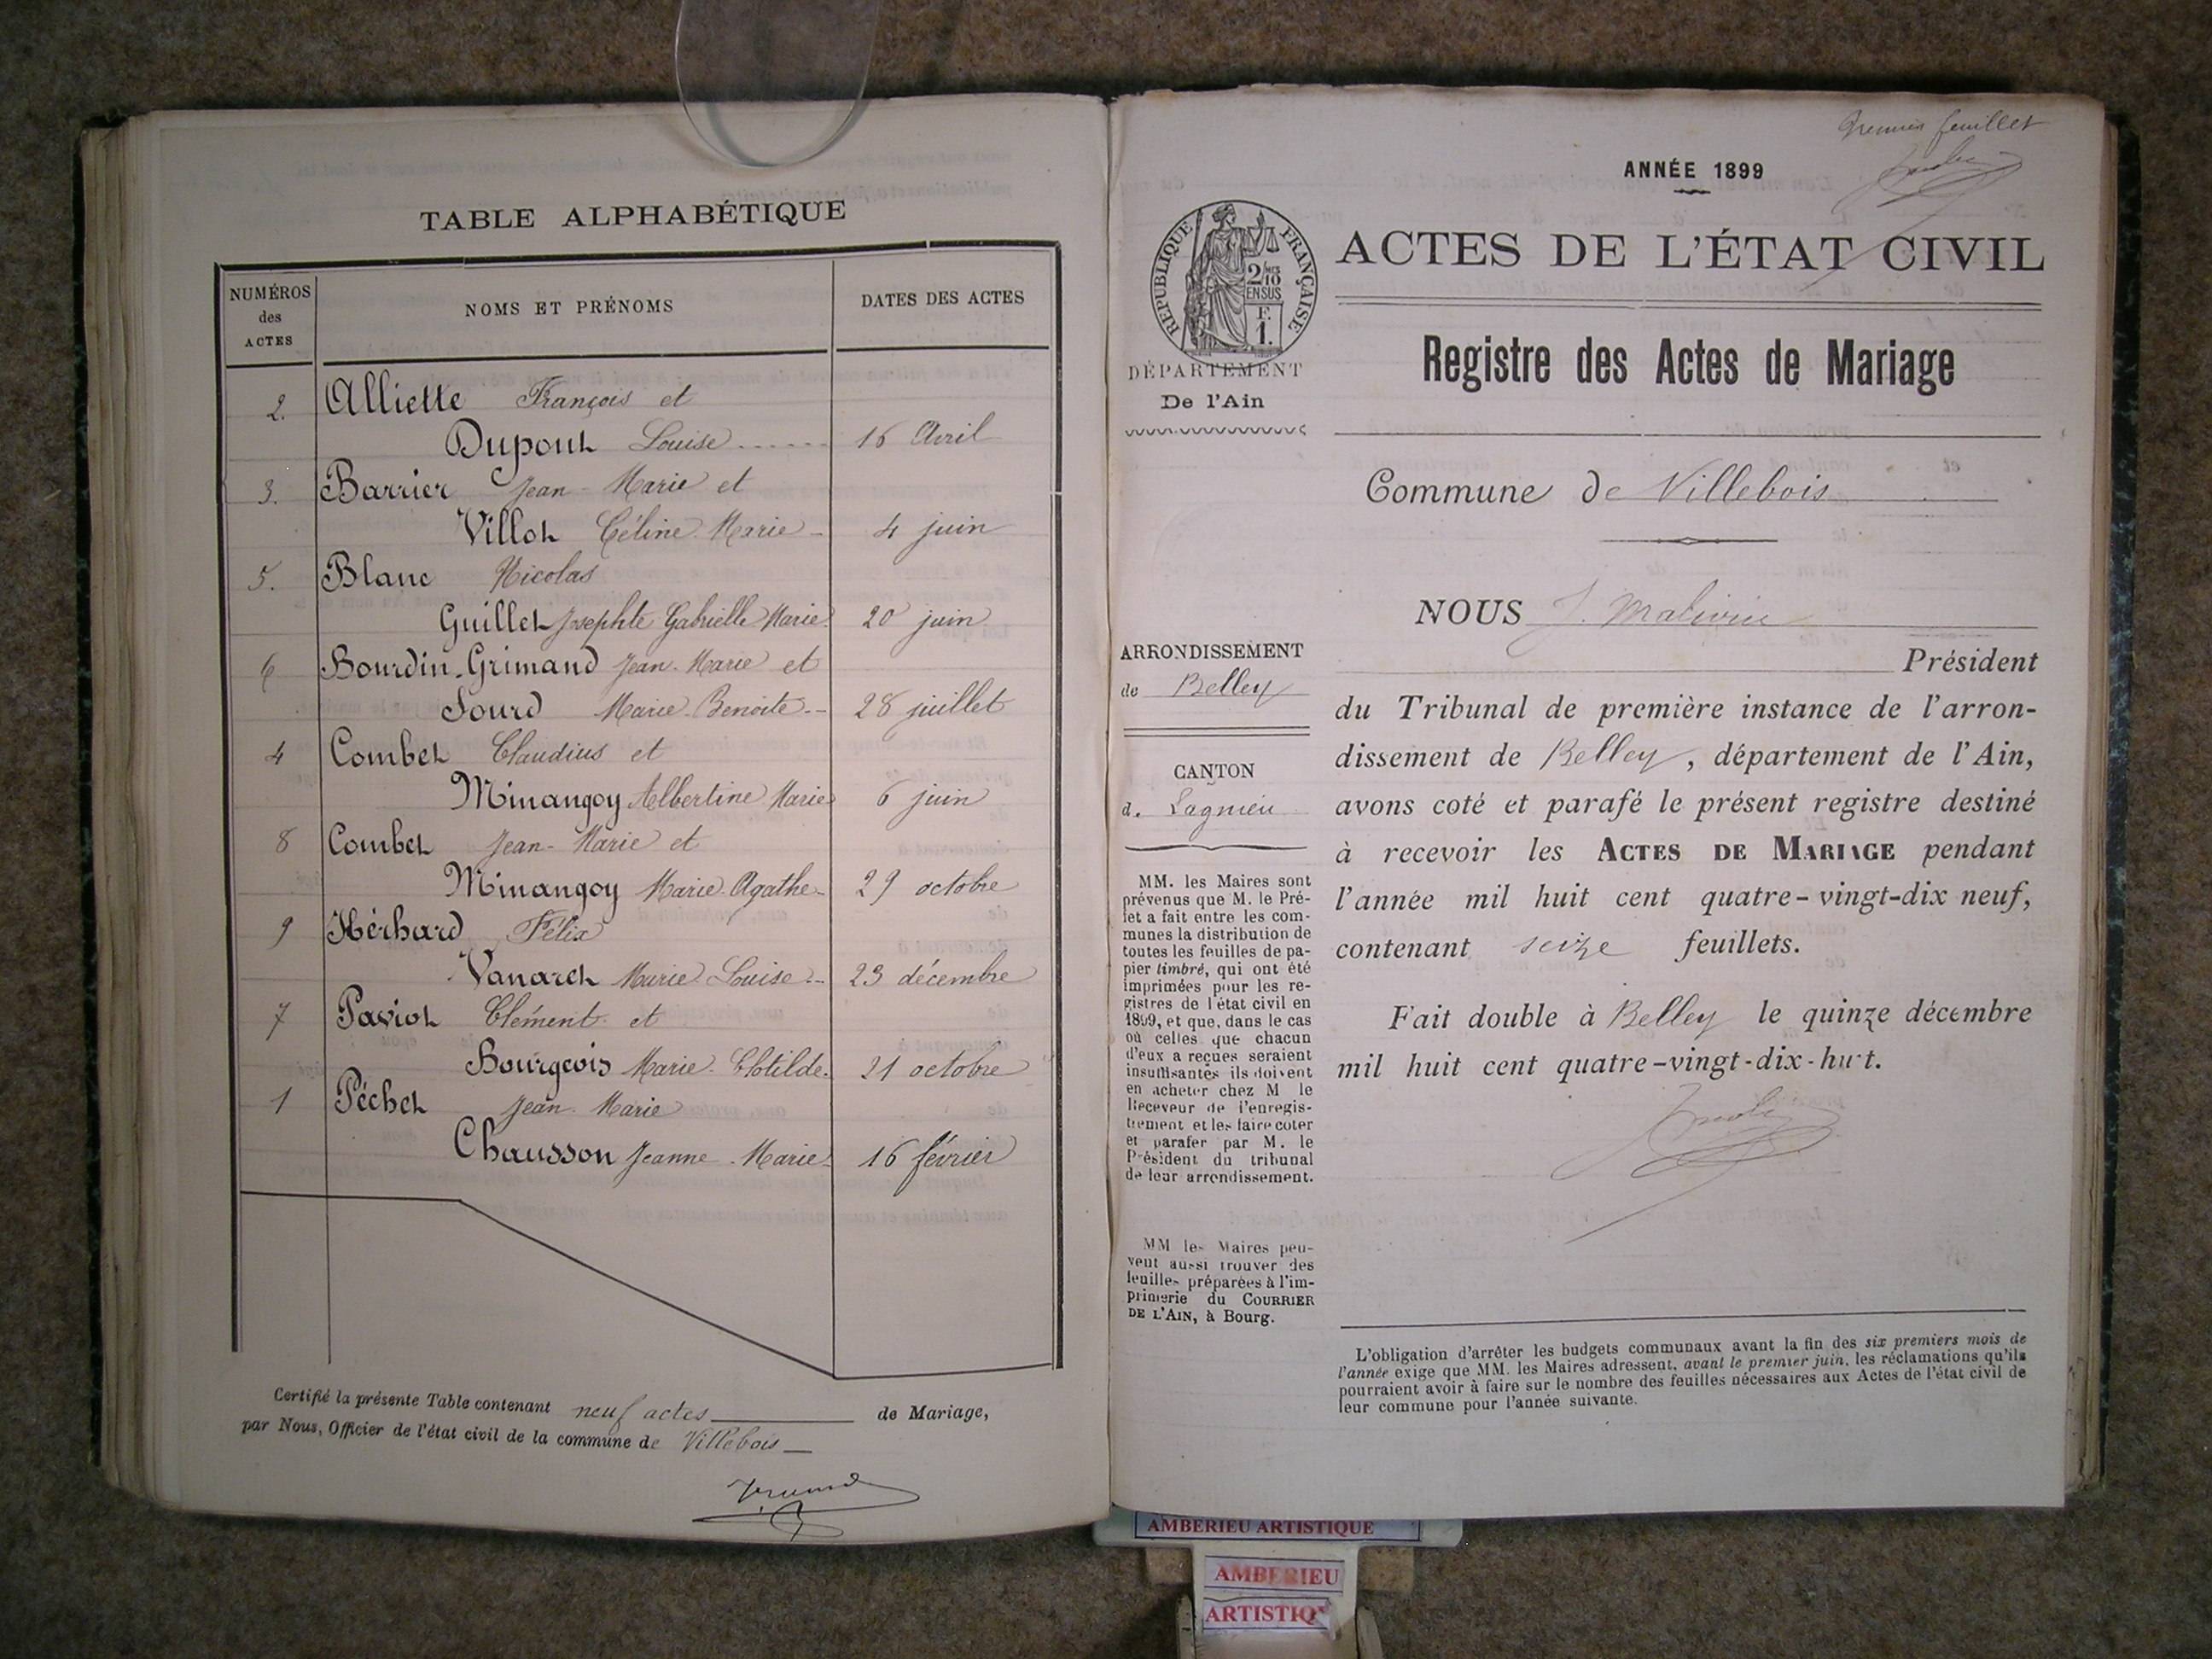 TABLE ALPHABÉTIQUE
NUMÉROS des ACTES
NOMS ET PRÉNOMS
DATES DES ACTES
2. Alliette François et
Dupont Louise 16 Avril
3. Barrier Jean-Marie et
Villot Céline Marie 4 juin
5. Blanc Nicolas
Guillet Josephte Gabrielle Marie 20 juin
6 Bourdin-Grimand Jean-Marie et
Sourd Marie Benoite 28 juillet
4 Combet Claudius et
Minangoy Albertine Marie 6 juin
8 Combet Jean-Marie et
Minangoy Marie Agathe 29 octobre
9 Hérhard Félix
Vanarch Marie Louise 23 décembre
7 Paviot Clément et
Bourgeois Marie Clotilde 21 octobre
1 Péchet Jean Marie
Chausson Jeanne-Marie 16 février
Certifié la présente Table contenant neuf actes de Mariage,
par Nous, Officier de l'état civil de la commune de Villebois
Premier feuillet
ANNÉE 1899
RÉPUBLIQUE FRANÇAISE
2/10 EN SUS
F. 1.
ACTES DE L'ÉTAT CIVIL
DÉPARTEMENT
De l'Ain
Registre des Actes de Mariage
Commune de Villebois
ARRONDISSEMENT
de Belley
CANTON
d. Lagnieu
MM. les Maires sont
prévenus que M. le Pré-
fet a fait entre les com-
munes la distribution de
toutes les feuilles de pa-
pier timbré, qui ont été
imprimées pour les re-
gistres de l'état civil en
1899, et que, dans le cas
où celles que chacun
d'eux a reçues seraient
insuffisantes ils doivent
en acheter chez M le
Receveur de l'enregis-
trement et les faire coter
et parafer par M. le
Président du tribunal
de leur arrondissement.
MM les Maires peu-
vent aussi trouver des
feuilles préparées à l'im-
primerie du COURRIER
DE L'AIN, à Bourg.
NOUS J.
Président
du Tribunal de première instance de l'arron-
dissement de Belley, département de l'Ain,
avons coté et parafé le présent registre destiné
à recevoir les ACTES DE MARIAGE pendant
l'année mil huit cent quatre-vingt-dix neuf,
contenant seize feuillets.
Fait double à Belley le quinze décembre
mil huit cent quatre-vingt-dix-huit.
L'obligation d'arrêter les budgets communaux avant la fin des six premiers mois de
l'année exige que MM. les Maires adressent, avant le premier juin, les réclamations qu'ils
pourraient avoir à faire sur le nombre des feuilles nécessaires aux Actes de l'état civil de
leur commune pour l'année suivante.
AMBERIEU ARTISTIQUE
AMBERIEU
ARTISTIQ